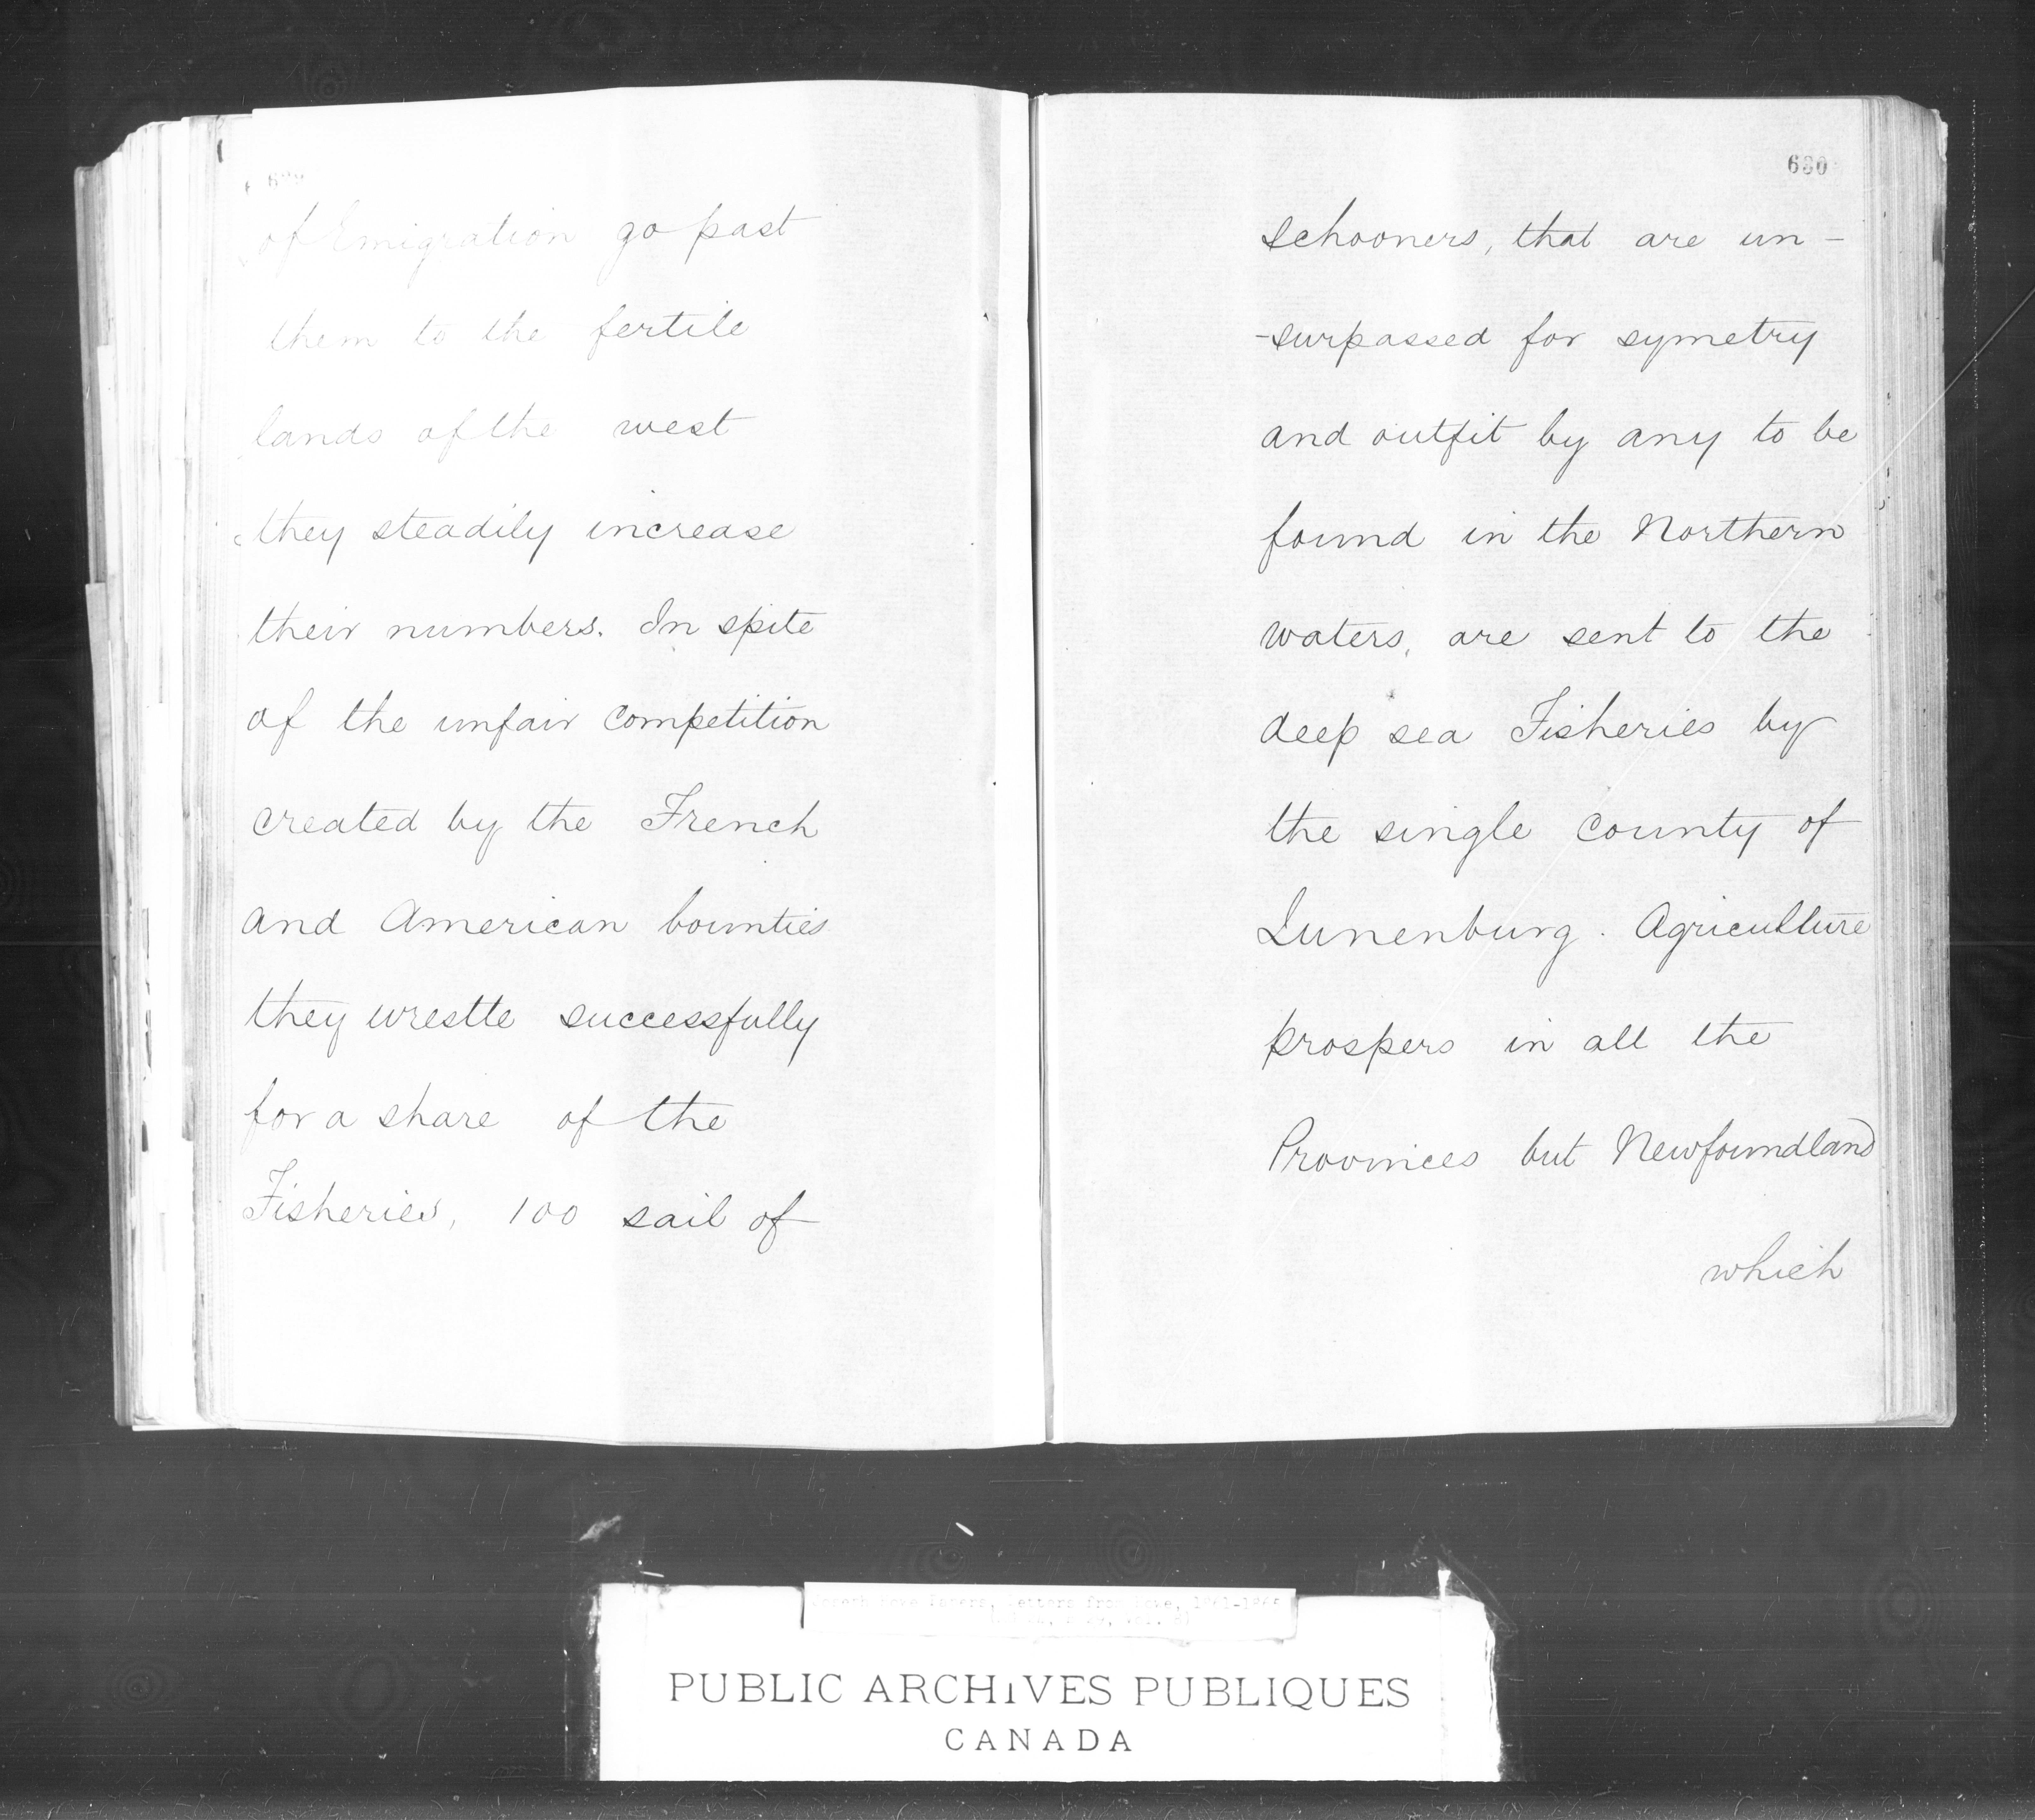 of Emigration go past
them to the fertile
lands of the west
they steadily increase
their numbers. In spite
of the unfair competition
created by the French
and American bounties
they wrestle successfully
for a share of the
Fisheries, 100 sail of
630
schooners, that are un-
-surpassed for symetry
and outfit by any to be
found in the Northern
waters, are sent to the
deep sea Fisheries by
the single county of
Lunenburg. Agriculture
prospers in all the
Provinces but Newfoundland
which
Joseph Howe Papers, Letters from Howe, 1861-1865
PUBLIC ARCHIVES PUBLIQUES
CANADA